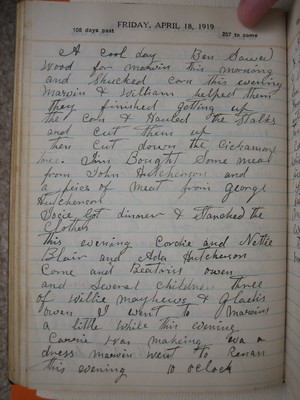 FRIDAY, APRIL 18, 1919
108 days past
257 to come
A cool day Ben Sawed
wood for marvin this morning
and shucked corn this evening
Marvin & William helped them
they finished getting up
the Corn & Hauled the Stalks
and cut them up
then Cut down the
tree. Jim Bought Some meat
from John Hutchenson and
a peices of meat from George
Hutchenson
Josie Got dinner & Starched the
Clothes
this evening Cordie and Nettie
Blair and Ada Hutchenson
Come and Beatris owen
and Several children three
of Willie mayhews & Gladis
owen I went to Marvins
a little while this evening
Carrie was making Eva a
dress marvin went to
this evening 10 oclock